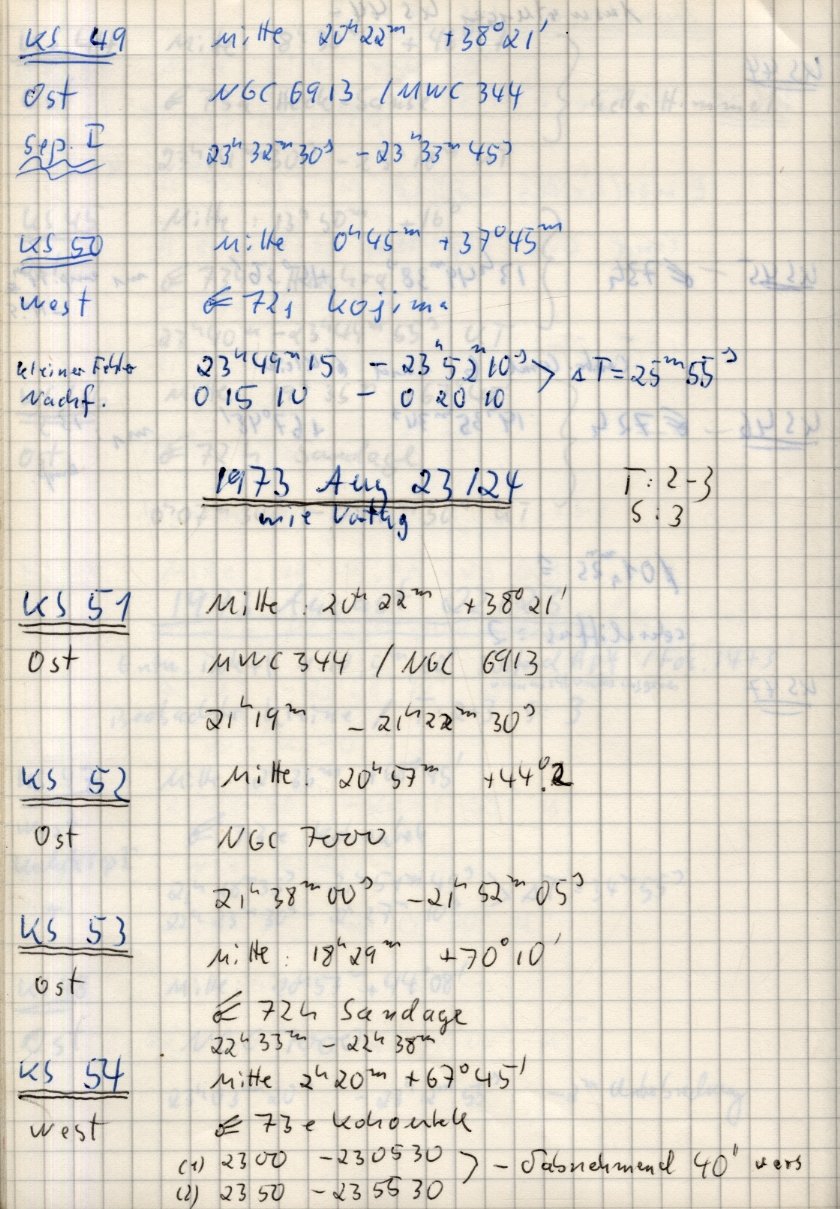 KS 49 Mitte 20ʰ22ᵐ +38°21'
Ost NGC 6913 / MWC 344
Sep. I 23ʰ32ᵐ30ˢ – 23ʰ33ᵐ45ˢ
KS 50 Mitte 0ʰ45ᵐ +37°45ᵐ
West 72j Kojima
kleiner Fehler 23ʰ49ᵐ15 – 23ʰ52ᵐ10ˢ > ΔT=25ᵐ55ˢ
Nachf. 0 15 10 – 0 20 10
1973 Aug 23/24 T: 2-3
wie Vortag S: 3
KS 51 Mitte: 20ʰ22ᵐ +38°21'
Ost MWC 344 / NGC 6913
21ʰ19ᵐ – 21ʰ22ᵐ30ˢ
KS 52 Mitte: 20ʰ57ᵐ +44°.2
Ost NGC 7000
21ʰ38ᵐ00ˢ – 21ʰ52ᵐ05ˢ
KS 53 Mitte: 18ʰ29ᵐ +70°10'
Ost
72h Sandage
22ʰ33ᵐ – 22ʰ38ᵐ
KS 54 Mitte 2ʰ20ᵐ +67°45'
West 73e Kohoutek
(1) 2300 – 230530 > – δ abnehmend 40' vers
(2) 2350 – 235530